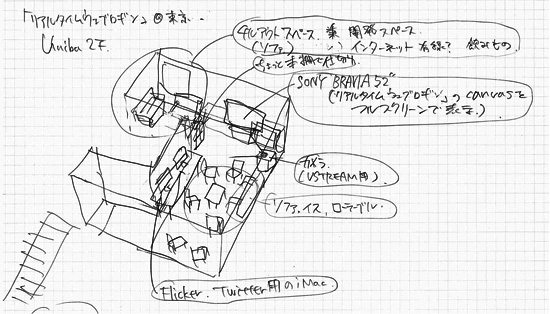 「リアルタイムウェブロボゲン」@東京.
Uniba 2F.
チルアウトスペース 兼 開発スペース
(ソファ) インターネット 有線? 飲みもの
ちょっと本棚で仕切り
SONY BRAVIA 52"
(「リアルタイムウェブロボゲン」の canvasを
フルスクリーンで表示.)
カメラ.
(USTREAM用)
ソファ, イス, ローテーブル.
Flicker. Twitter用のiMac.